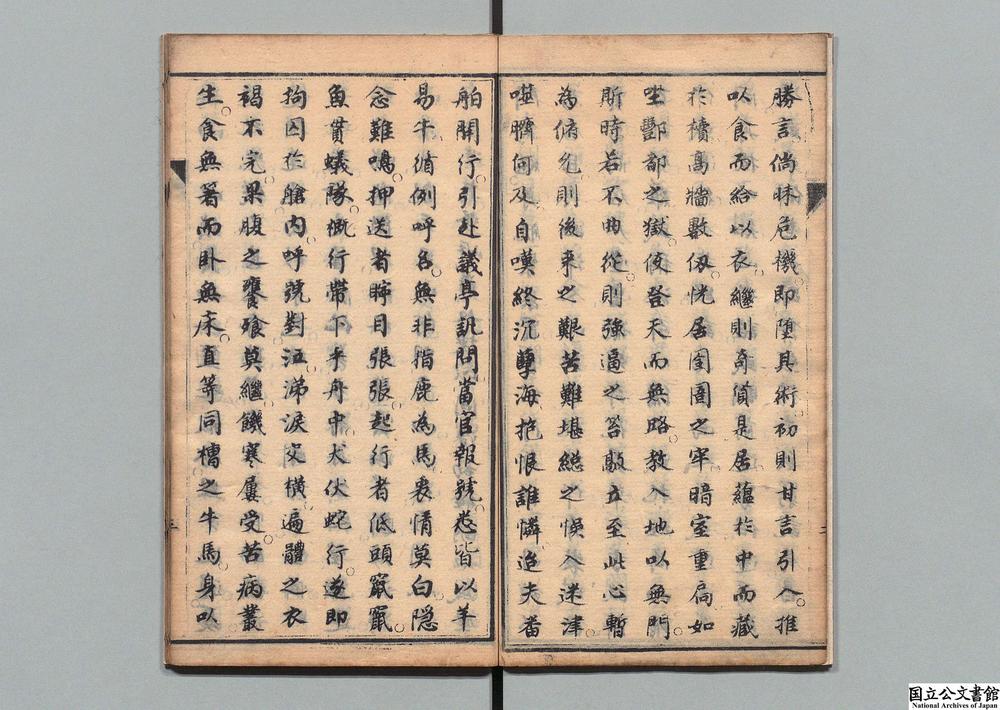 勝言倘昧危機即墮具術初則甘言引入推
以食而給以衣繼則奇貨是居蘊於中而藏
於櫝高墻數仭恍居圄圄之牢暗室重扃如
坐酆都之獄使登天而無路教入地以無門
斯時若不曲從則強逼之笞敲立至此心暫
為俯允則後來之艱苦難堪總之悞入迷津
噬臍何及自嘆終沉孽海抱恨誰憐迨夫番
舶開行引赴議亭訊問當官報號悉皆以羊
易牛循例呼名無非指鹿為馬衷情莫白隱
念難鳴押送者睜目張張起行者低頭竄竄
魚貫蟻隊概行帶下乎舟中犬伏蛇行遂即
拘囚於艙內呼號對泣涕淚交橫遍體之衣
褐不完果腹之饔飧莫繼饑寒屢受苦病叢
生食無箸而卧無床直等同槽之牛馬身以
二
三
国立公文書館
National Archives of Japan